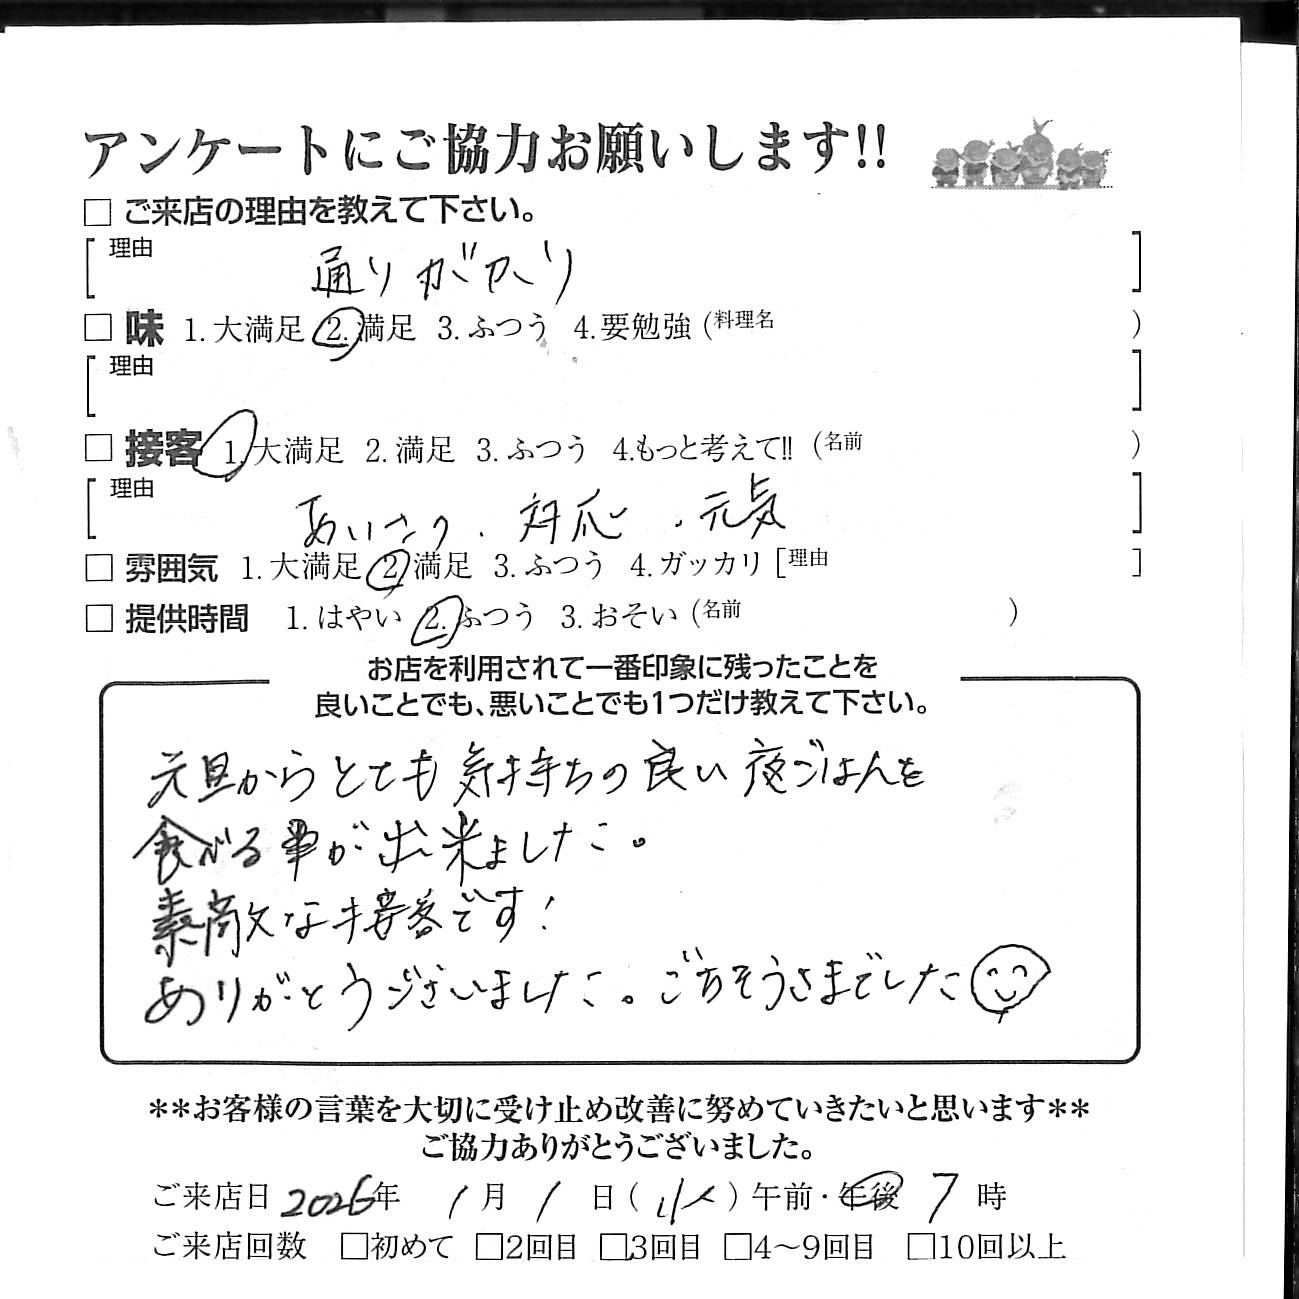 アンケートにご協力お願いします!!
□ ご来店の理由を教えて下さい。
[理由 通りがかり]
□ 味 1.大満足 2.満足 3.ふつう 4.要勉強 (料理名 )
[理由 ]
□ 接客 1.大満足 2.満足 3.ふつう 4.もっと考えて!! (名前 )
[理由 あいさつ.対応.元気]
□ 雰囲気 1.大満足 2.満足 3.ふつう 4.ガッカリ [理由 ]
□ 提供時間 1.はやい 2.ふつう 3.おそい (名前 )
お店を利用されて一番印象に残ったことを
良いことでも、悪いことでも1つだけ教えて下さい。
元旦からとても気持ちの良い夜ごはんを
食べる事が出来ました。
素敵な接客です!
ありがとうございました。ごちそうさまでした
**お客様の言葉を大切に受け止め改善に努めていきたいと思います**
ご協力ありがとうございました。
ご来店日 2026年 1月 1日( ) 午前・午後 7時
ご来店回数 □初めて □2回目 □3回目 □4〜9回目 □10回以上